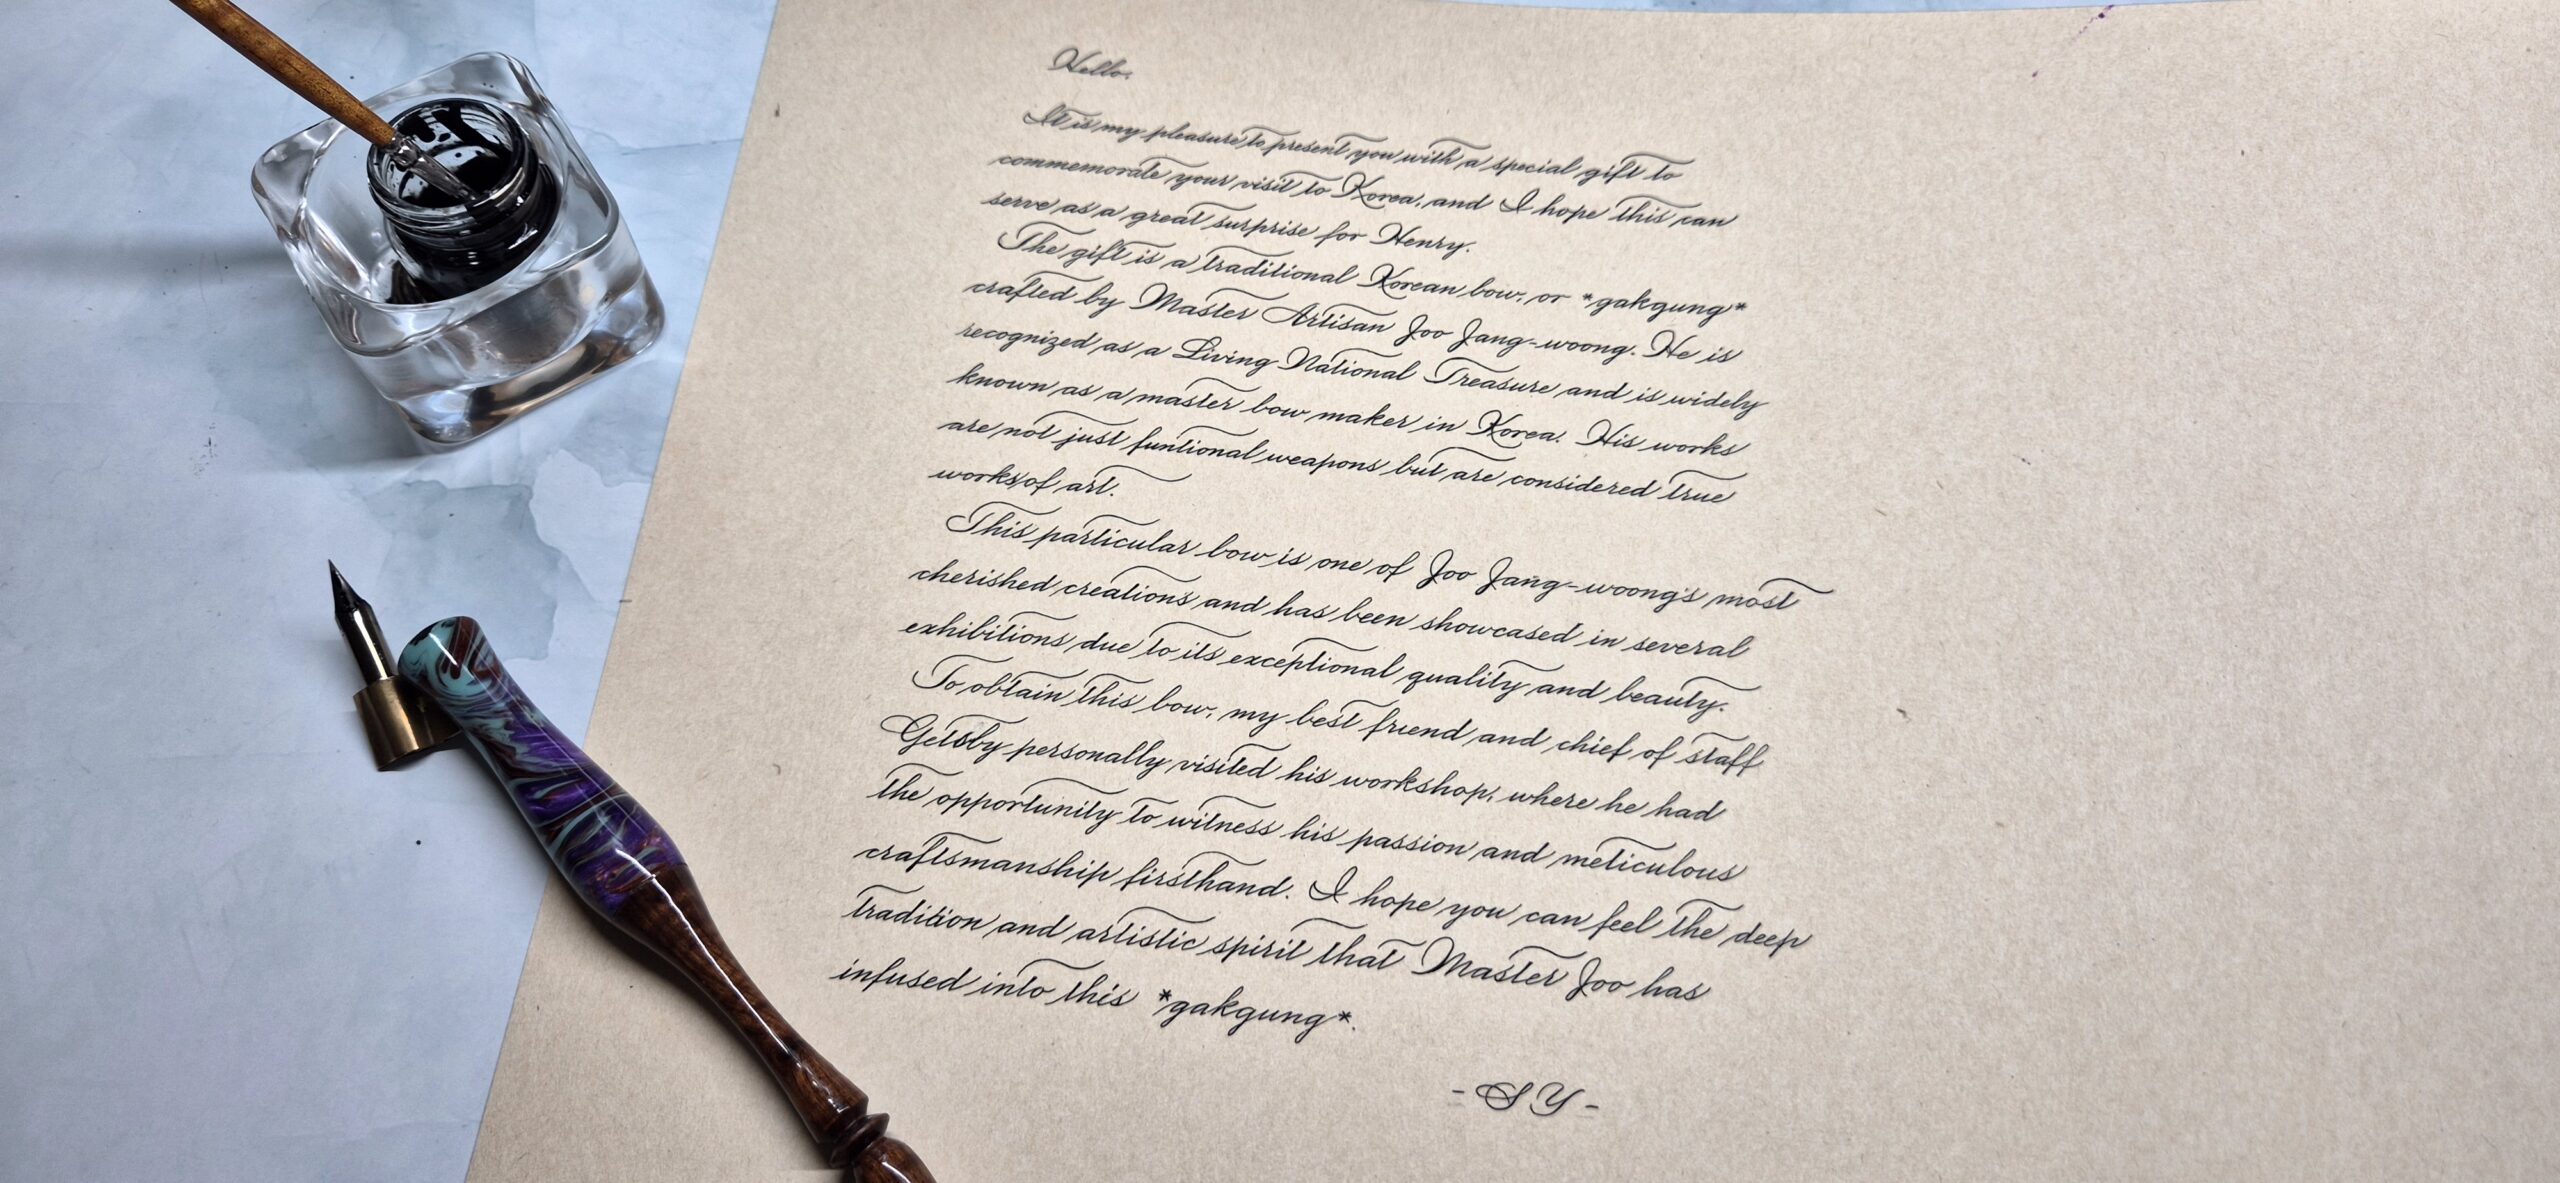 Hello.
It is my pleasure to present you with a special gift to
commemorate your visit to Korea, and I hope this can
serve as a great surprise for Henry.
The gift is a traditional Korean bow, or *gakgung*
crafted by Master Artisan Joo Jang-woong. He is
recognized as a Living National Treasure and is widely
known as a master bow maker in Korea. His works
are not just funtional weapons but are considered true
works of art.
This particular bow is one of Joo Jang-woong's most
cherished creations and has been showcased in several
exhibitions due to its exceptional quality and beauty.
To obtain this bow, my best friend and chief of staff
Getsby personally visited his workshop, where he had
the opportunity to witness his passion and meticulous
craftsmanship firsthand. I hope you can feel the deep
tradition and artistic spirit that Master Joo has
infused into this *gakgung*.
- SY -